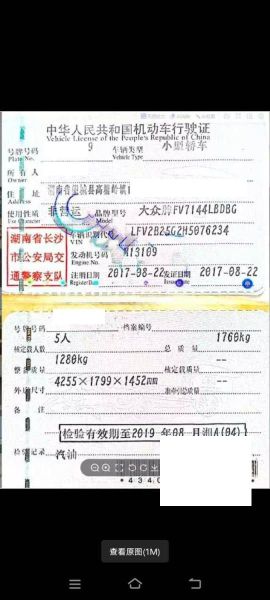 中华人民共和国机动车行驶证
Vehicle License of the People's Republic of China
号牌号码 9 车辆类型 小型轿车
Plate No. Vehicle Type
所有人
Owner
住址 湖南省 县高
Address
使用性质 非营运 品牌型号 大众牌FV7144LBDBG
Use Character Model
湖南省长沙市公安局交通警察支队
车辆识别代号 LFV2B25G2H5076234
VIN
发动机号码 M13109
Engine No.
注册日期 2017-08-22 发证日期 2017-08-22
号牌号码 档案编号
核定载人数 5人 总质量 1760kg
整备质量 1280kg 核定载质量 --
外廓尺寸 4255×1799×1452mm 准牵引总质量 --
备注
检验有效期至2019年08月湘A(04)
检验记录 汽油
查看原图(1M)